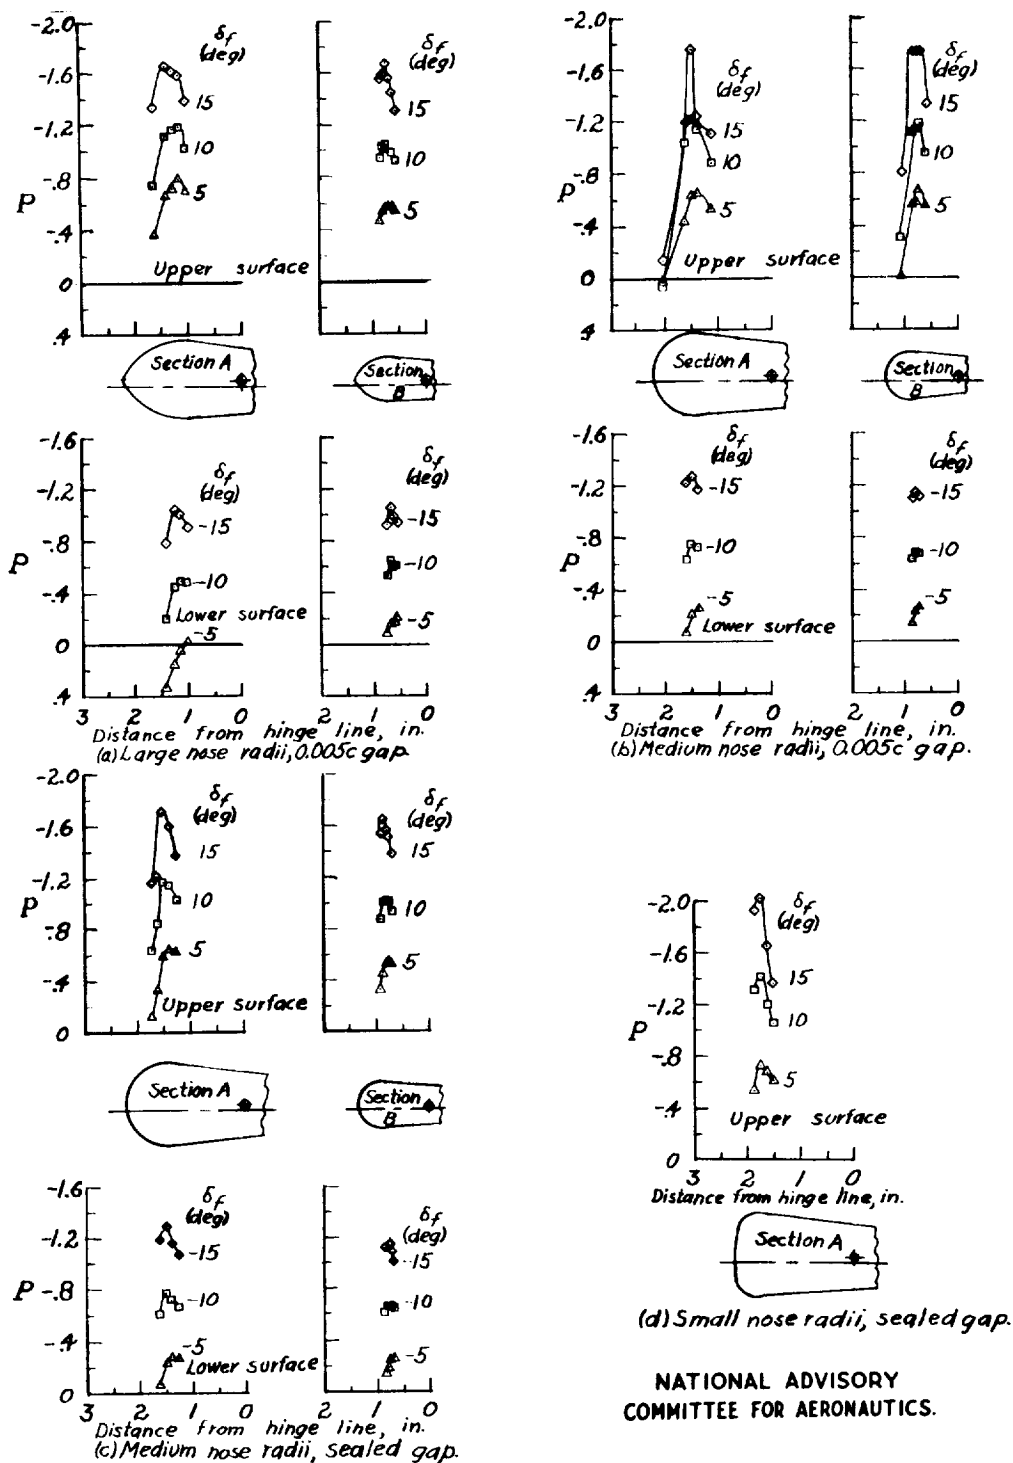 -2.0
-1.6
-1.2
-.8
P
-.4
0
.4
δf
(deg)
15
10
5
Upper surface
δf
(deg)
15
10
5
3 2 1 0
2 1 0
Section A
Section
B
-1.6
-1.2
-.8
P
-.4
0
.4
δf
(deg)
-15
-10
Lower surface
-5
δf
(deg)
-15
-10
-5
3 2 1 0
2 1 0
Distance from hinge line, in.
(a) Large nose radii, 0.005c gap.
-2.0
-1.6
-1.2
-.8
P
-.4
0
.4
δf
(deg)
15
10
5
Upper surface
δf
(deg)
15
10
5
3 2 1 0
2 1 0
Section A
Section
B
-1.6
-1.2
-.8
P
-.4
0
.4
δf
(deg)
-15
-10
-5
Lower surface
δf
(deg)
-15
-10
-5
3 2 1 0
2 1 0
Distance from hinge line, in.
(b) Medium nose radii, 0.005c gap.
-2.0
-1.6
-1.2
P
-.8
-.4
0
δf
(deg)
15
10
5
Upper surface
δf
(deg)
15
10
5
3 2 1 0
2 1 0
Section A
Section
B
-1.6
-1.2
P -.8
-.4
0
δf
(deg)
-15
-10
-5
Lower surface
δf
(deg)
-15
-10
-5
3 2 1 0
2 1 0
Distance from hinge line, in.
(c) Medium nose radii, sealed gap.
-2.0
-1.6
-1.2
P
-.8
-.4
0
δf
(deg)
15
10
5
Upper surface
3 2 1 0
Distance from hinge line, in.
Section A
(d) Small nose radii, sealed gap.
NATIONAL ADVISORY
COMMITTEE FOR AERONAUTICS.